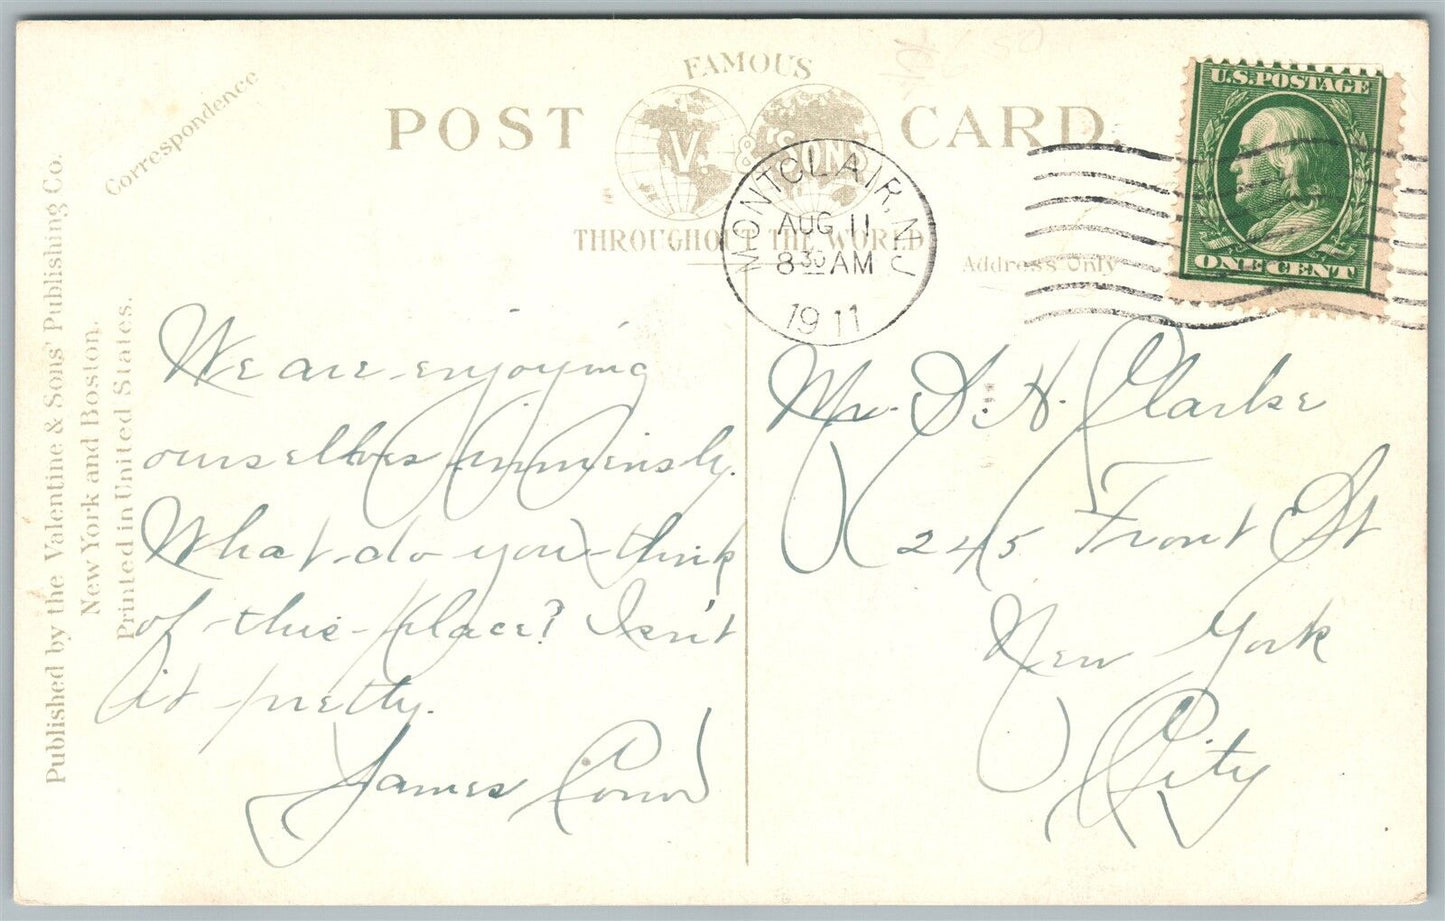 FAMOUS
POST CARD.
V. & SONS
THROUGHOUT THE WORLD
Correspondence
Address Only
Published by the Valentine & Sons' Publishing Co.
New York and Boston.
Printed in United States.
MONTCLAIR, N.J.
AUG 11
8 30 AM
1911
U.S. POSTAGE
ONE CENT
We are enjoying
ourselves immensly.
What do you think
of this place? Isn't
it pretty.
James
Mr. S. H. Clarke
245 Front St
New York
City